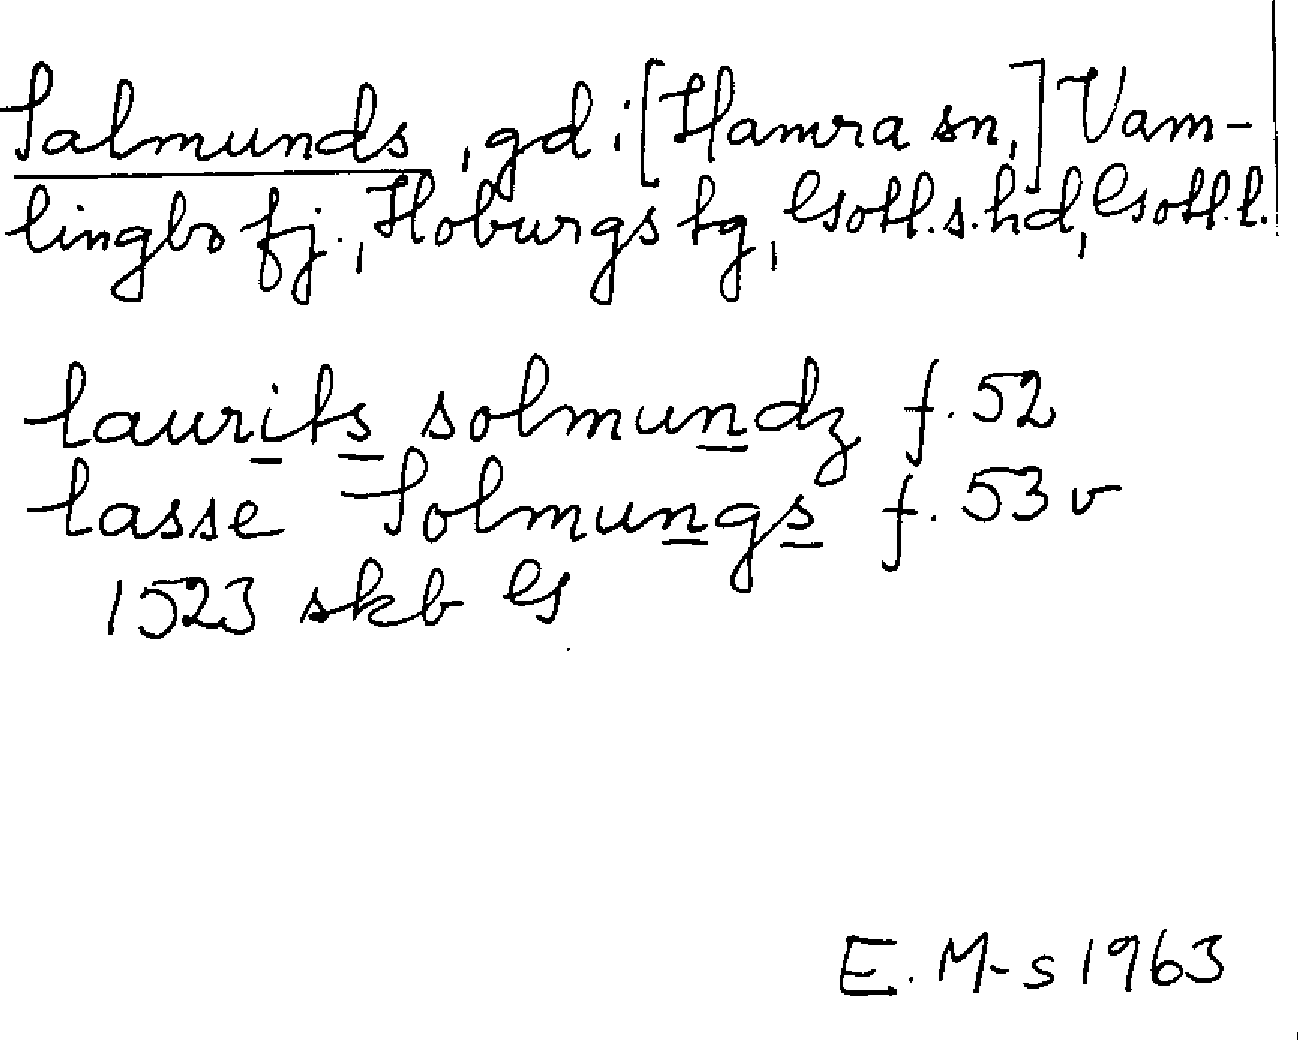 Salmunds, gd i [Hamra sn,] Vam-
lingbo fj., Hoburgs tg, Gotl.s.hd, Gotl.l.
laurits solmundz f. 52
lasse Solmungs f. 53 v
1523 skb G
E. M-s 1963